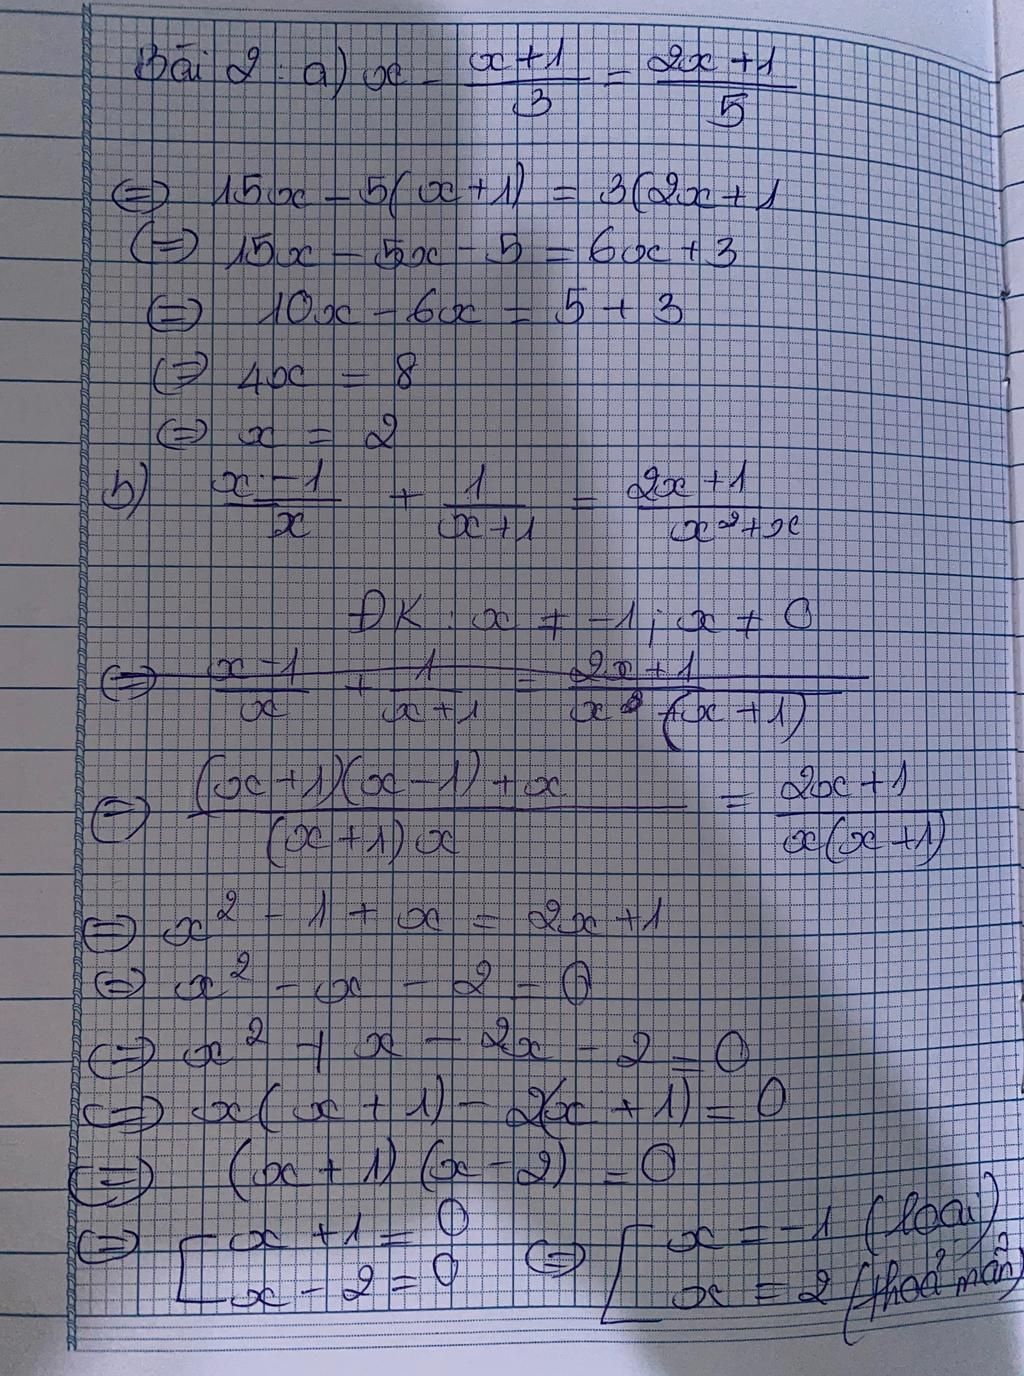 Bài 2: a) x - \frac{x+1}{3} = \frac{2x+1}{5}
⇔ 15x - 5(x+1) = 3(2x+1
⇔ 15x - 5x - 5 = 6x + 3
⇔ 10x - 6x = 5 + 3
⇔ 4x = 8
⇔ x = 2
b) \frac{x-1}{x} + \frac{1}{x+1} = \frac{2x+1}{x^2+x}
ĐK: x ≠ -1; x ≠ 0
⇔ \frac{x-1}{x} + \frac{1}{x+1} = \frac{2x+1}{x(x+1)}
⇔ \frac{(x+1)(x-1)+x}{(x+1)x} = \frac{2x+1}{x(x+1)}
⇔ x^2 - 1 + x = 2x + 1
⇔ x^2 - x - 2 = 0
⇔ x^2 + x - 2x - 2 = 0
⇔ x(x+1) - 2(x+1) = 0
⇔ (x+1)(x-2) = 0
⇔ [ x + 1 = 0 ⇔ [ x = -1 (loại)
x - 2 = 0 x = 2 (thoả mãn)